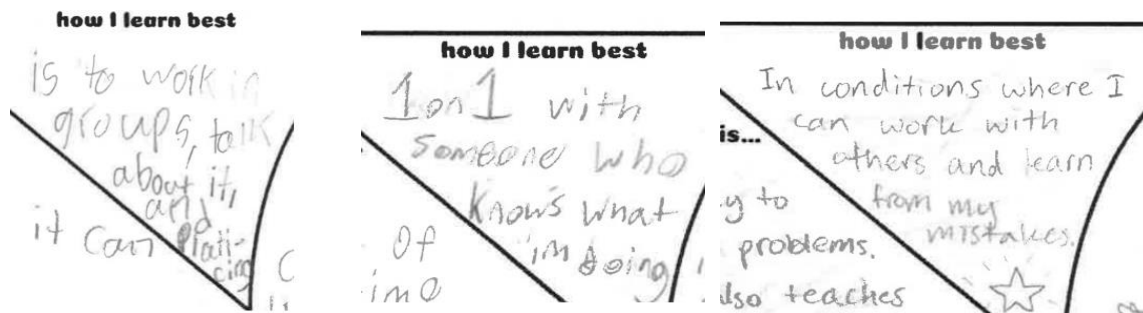 how I learn best
is to work in
groups, talk
about it,
and
it can
how I learn best
1 on 1 with
someone who
knows what
im doing
of
ime
how I learn best
In conditions where I
can work with
others and learn
from my
mistakes.
is...
y to
problems.
lso teaches